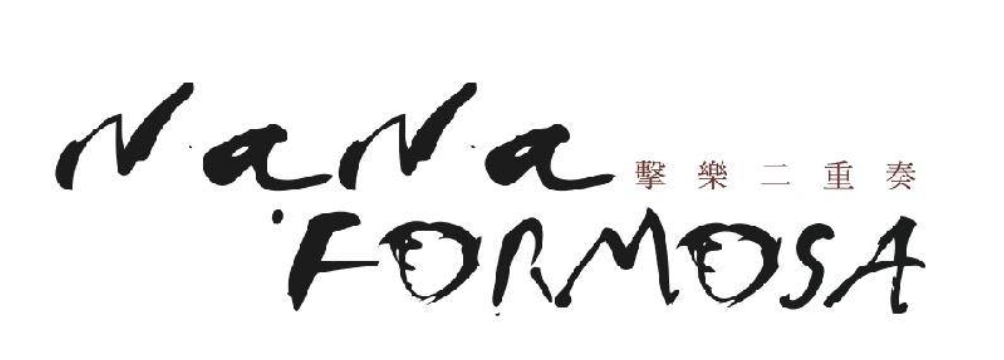 NaNa 擊樂二重奏
FORMOSA